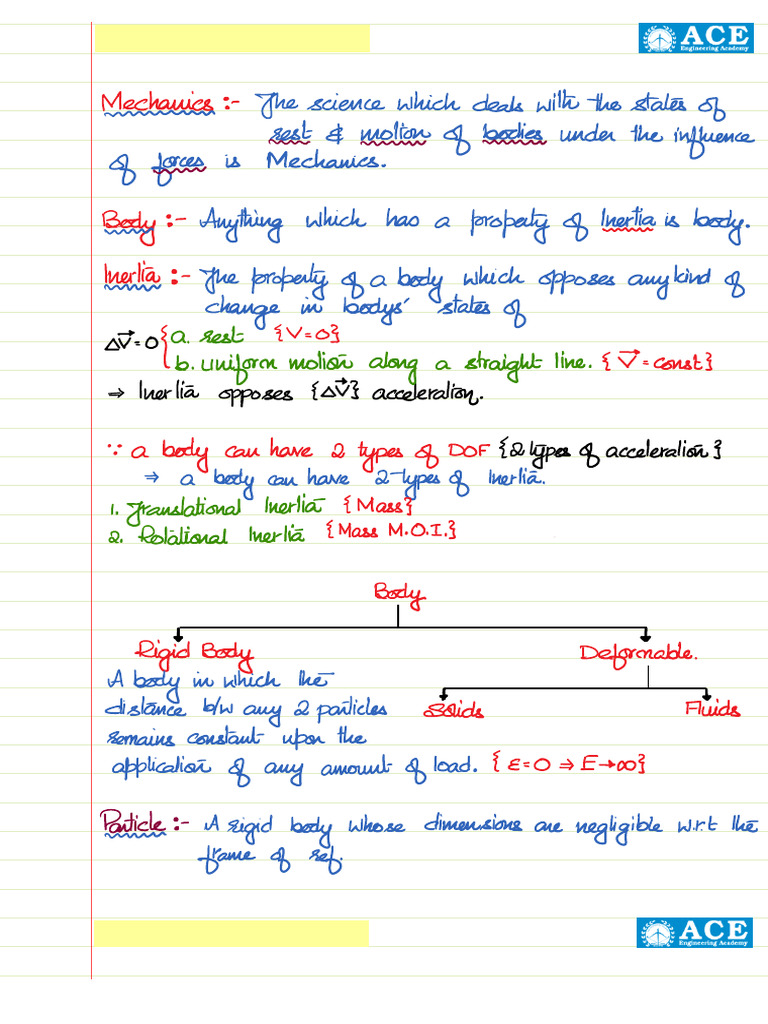 ACE
Engineering Academy
Mechanics :- The science which deals with the states of
rest & motion of bodies under the influence
of forces is Mechanics.
Body :- Anything which has a property of Inertia is body.
Inertia :- The property of a body which opposes any kind of
change in bodys' states of
ΔV⃗=0 { a. rest {V=0}
b. uniform motion along a straight line. {V⃗=const}
⇒ Inertia opposes {ΔV⃗} acceleration.
∵ a body can have 2 types of DOF {2 types of acceleration}
⇒ a body can have 2-types of Inertia.
1. Translational Inertia {Mass}
2. Rotational Inertia {Mass M.O.I.}
Body
Rigid Body Deformable.
A body in which the
distance b/w any 2 particles Solids Fluids
remains constant upon the
application of any amount of load. {ε=0 ⇒ E→∞}
Particle :- A rigid body whose dimensions are negligible w.r.t the
frame of ref.
ACE
Engineering Academy